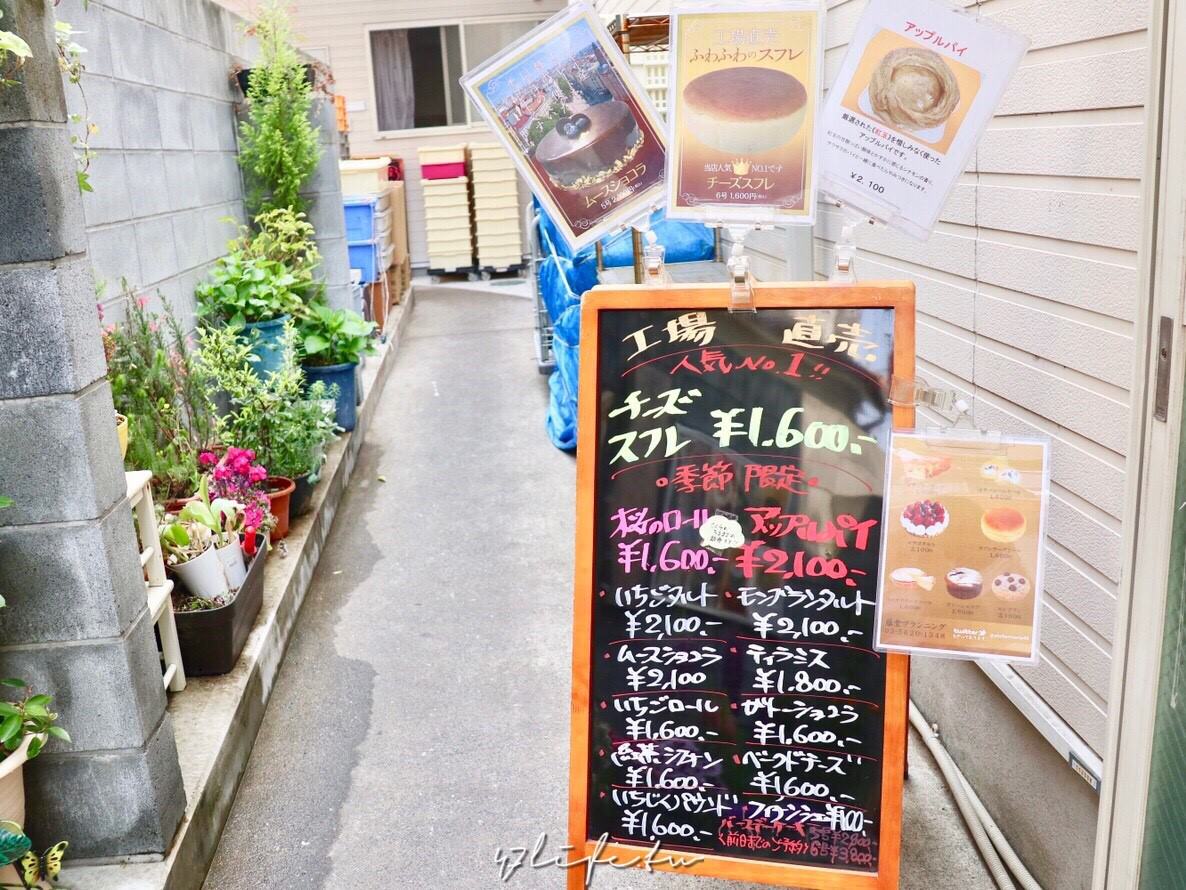 工場直売
ムースショコラ
ふわふわのスフレ
当店人気 NO.1です
チーズスフレ
6号 1,600円(税込)
アップルパイ
厳選された《紅玉》を惜しみなく使った
アップルパイです。
¥2,100
工場 直売
人気No.1!!
チーズ
スフレ ¥1,600.-
季節限定
桜のロール
¥1,600.-
アップルパイ
¥2,100.-
いちごタルト
¥2,100.-
モンブランタルト
¥2,100.-
ムースショコラ
¥2,100
ティラミス
¥1,800.-
いちごロール
¥1,600.-
ガトーショコラ
¥1,600.-
紅茶シフォン
¥1,600.-
ベークドチーズ
¥1,600.-
¥1,600.-
フィナンシェ ¥100.-
バースデーケーキ
5号¥2,800
<前日までのご予約>
藤堂プランニング
03-5620-1348
twitter
47life.tw